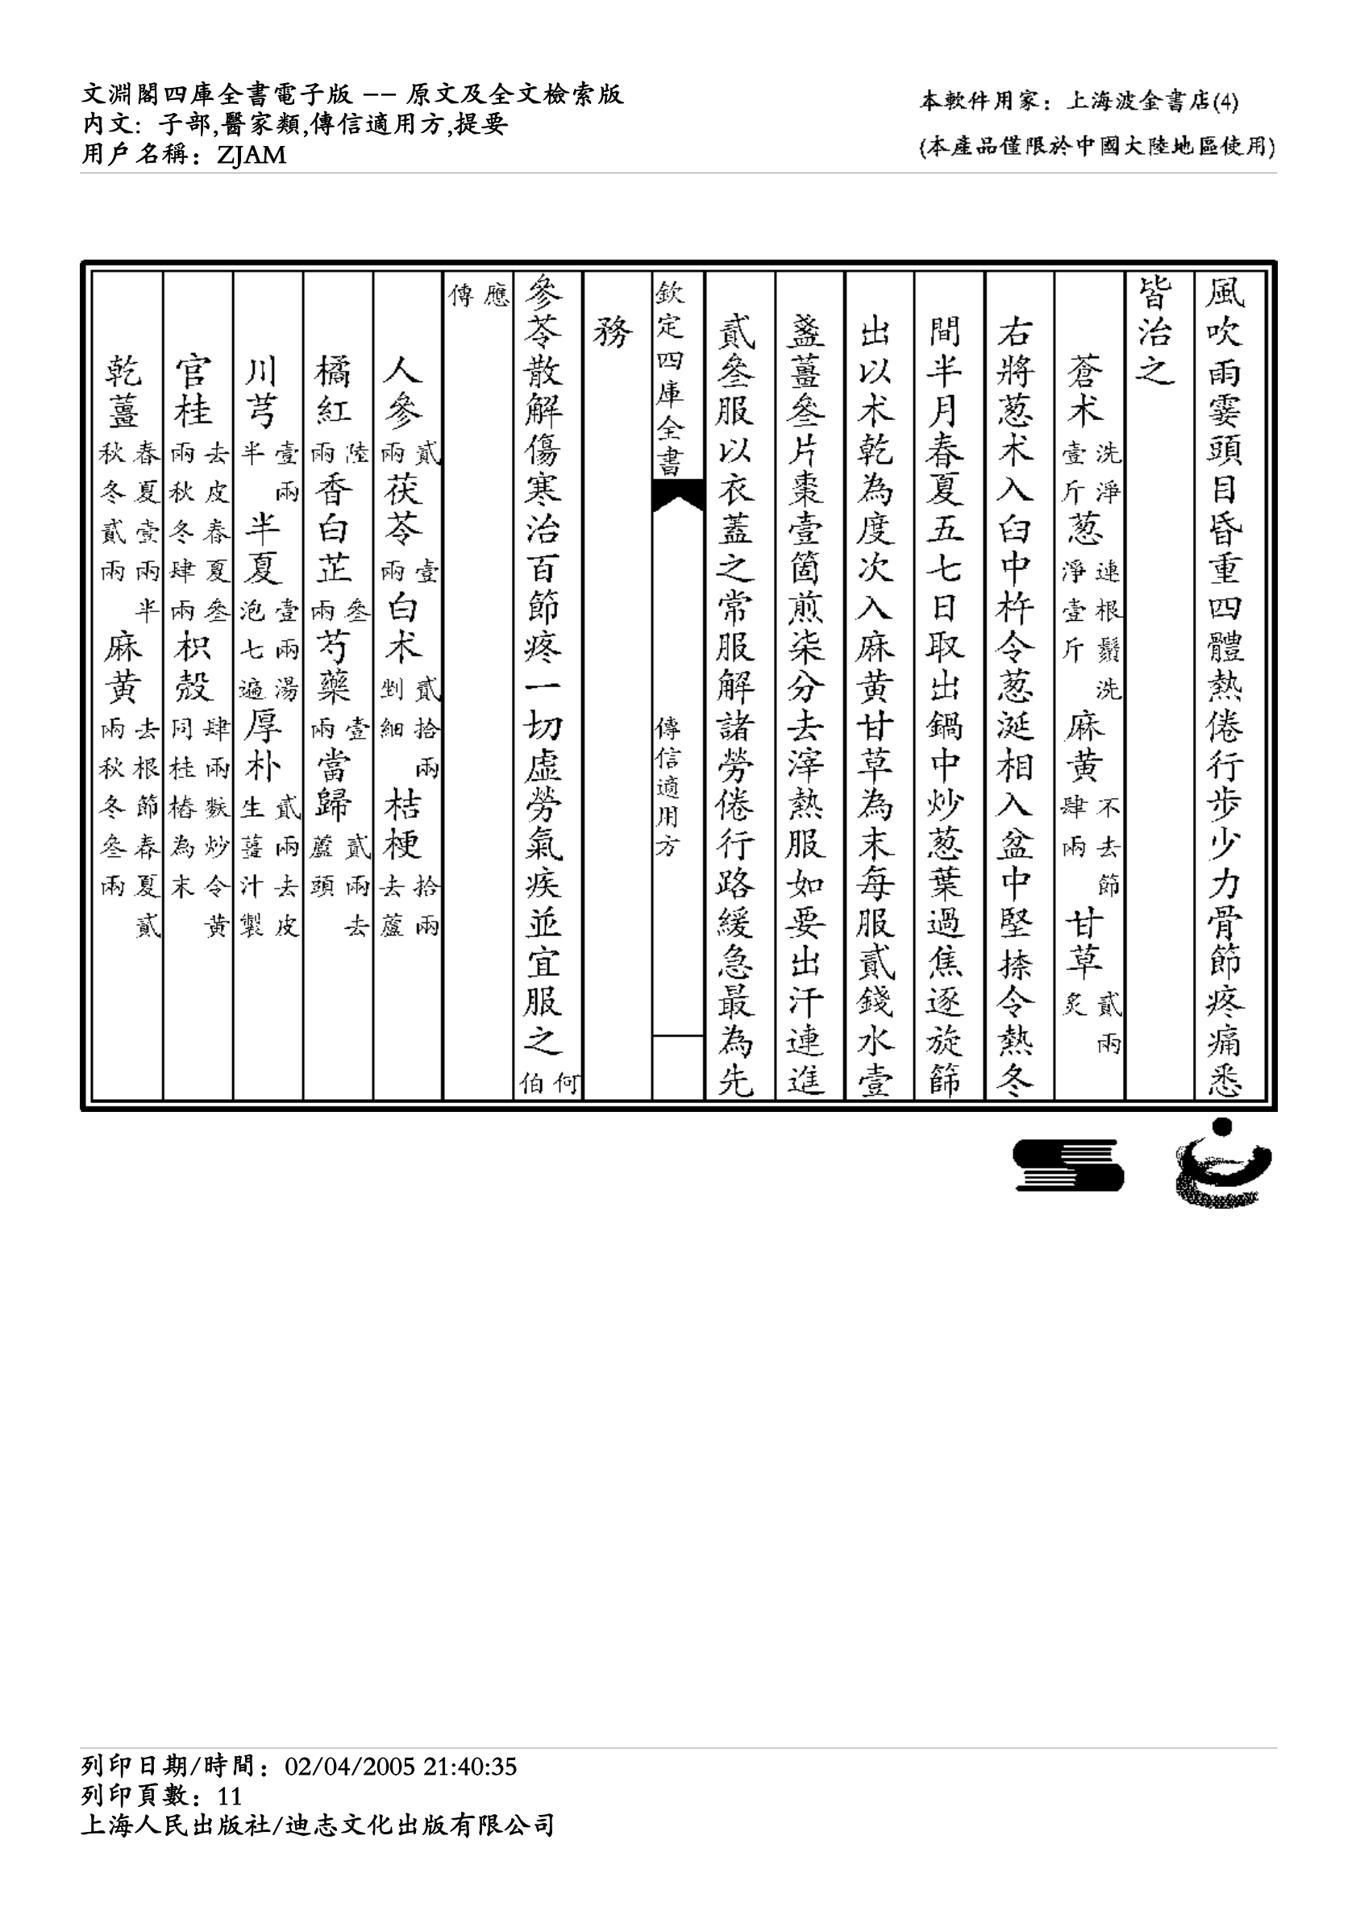 文淵閣四庫全書電子版 -- 原文及全文檢索版
内文: 子部,醫家類,傳信適用方,提要
用戶名稱: ZJAM
本軟件用家: 上海波金書店(4)
(本產品僅限於中國大陸地區使用)
風吹雨霎頭目昏重四體熱倦行步少力骨節疼痛悉
皆治之
蒼术洗淨壹斤葱連根鬚洗淨壹斤麻黄不去節肆兩甘草貳兩炙
右將葱术入臼中杵令葱涎相入盆中堅捺令熱冬
間半月春夏五七日取出鍋中炒葱葉過焦逐旋篩
出以术乾為度次入麻黄甘草為末每服貳錢水壹
盞薑叄片棗壹箇煎柒分去滓熱服如要出汗連進
貳叄服以衣蓋之常服解諸勞倦行路緩急最為先
欽定四庫全書
傳信適用方
務
參苓散解傷寒治百節疼一切虛勞氣疾並宜服之何伯
應傳
人參貳兩茯苓壹兩白术貳拾兩剉細桔梗拾兩去蘆
橘紅陸兩香白芷叄兩芍藥壹兩當歸貳兩去蘆頭
川芎壹兩半半夏壹兩湯泡七遍厚朴貳兩去皮生薑汁製
官桂去皮春夏叄兩秋冬肆兩枳殻肆兩麩炒令黃同桂樁為末
乾薑春夏壹兩半秋冬貳兩麻黄去根節春夏貳兩秋冬叄兩
列印日期/時間: 02/04/2005 21:40:35
列印頁數: 11
上海人民出版社/迪志文化出版有限公司